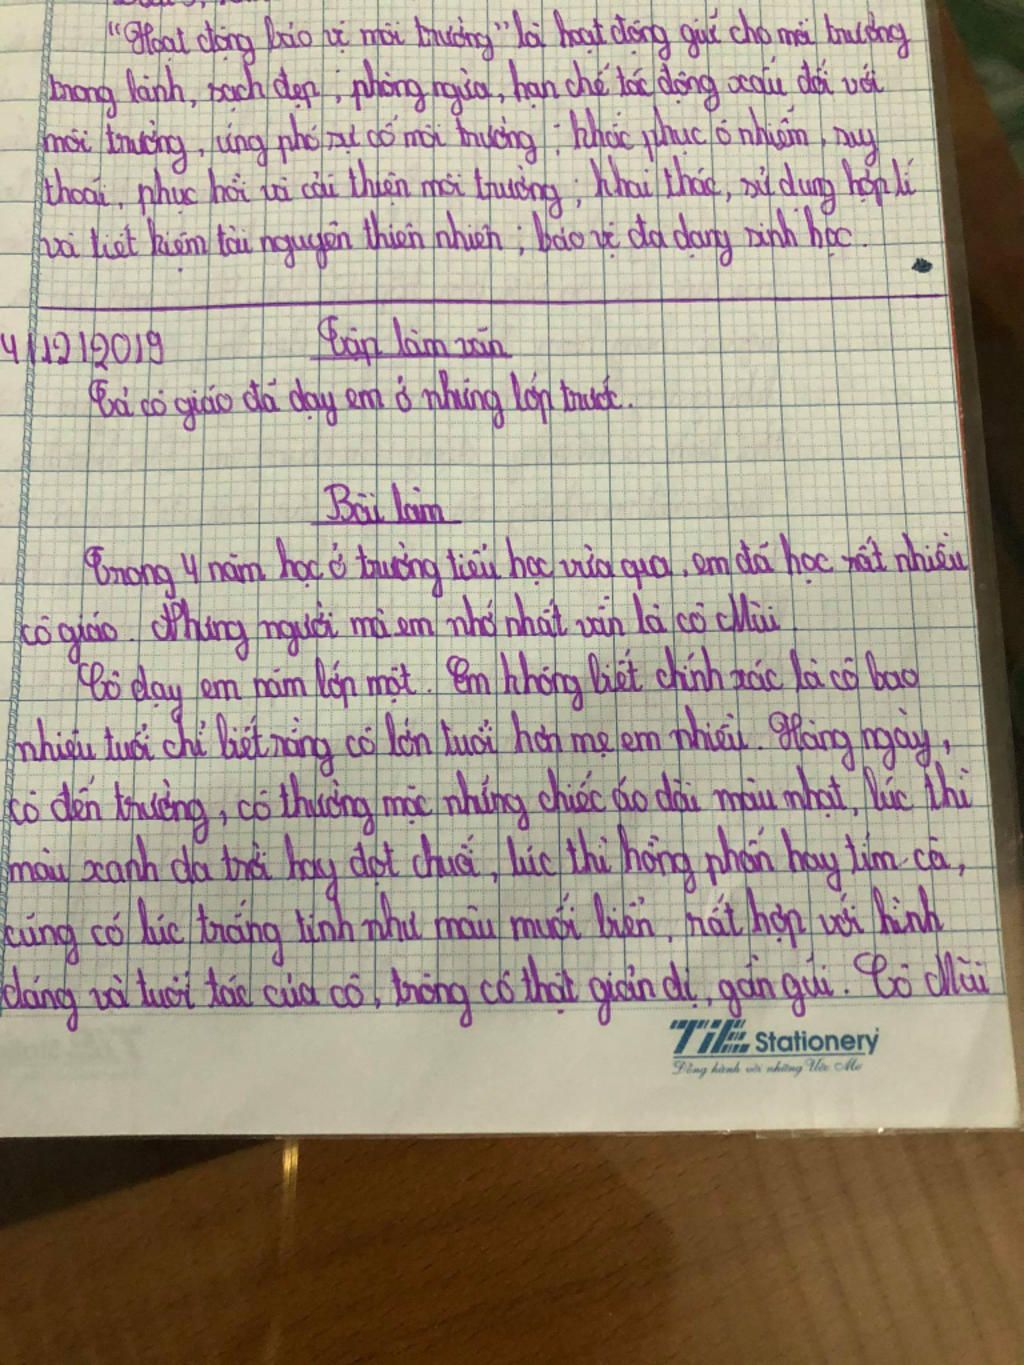 "Hoạt động bảo vệ môi trường" là hoạt động giữ cho môi trường
trong lành, sạch đẹp ; phòng ngừa, hạn chế tác động xấu đối với
môi trường, ứng phó sự cố môi trường ; khắc phục ô nhiễm, suy
thoái, phục hồi và cải thiện môi trường ; khai thác, sử dụng hợp lí
và tiết kiệm tài nguyên thiên nhiên ; bảo vệ đa dạng sinh học.
4/12/2019 Tập làm văn
Tả cô giáo đã dạy em ở những lớp trước.
Bài làm
Trong 4 năm học ở trường tiểu học vừa qua, em đã học rất nhiều
cô giáo. Nhưng người mà em nhớ nhất vẫn là cô Mùi.
Cô dạy em năm lớp một. Em không biết chính xác là cô bao
nhiêu tuổi chỉ biết rằng cô lớn tuổi hơn mẹ em nhiều. Hàng ngày,
cô đến trường, cô thường mặc những chiếc áo dài màu nhạt, lúc thì
màu xanh da trời hay đọt chuối, lúc thì hồng phấn hay tím cà,
cũng có lúc trắng tinh như màu muối biển, rất hợp với hình
dáng và tuổi tác của cô, trông cô thật giản dị, gần gũi. Cô Mùi
TiE Stationery
Đồng hành với những Ước Mơ